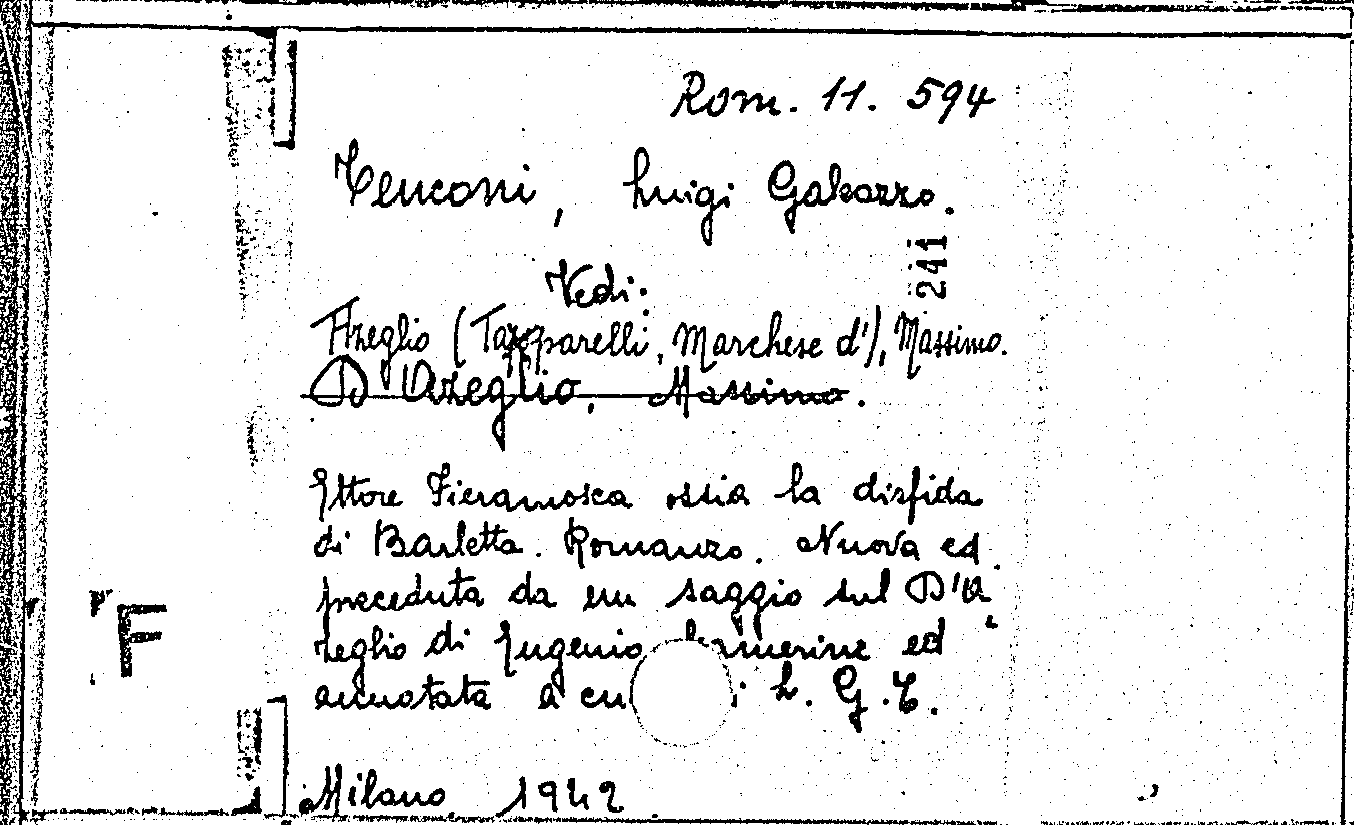 Rom. 11. 594
Tenconi, Luigi Galeazzo.
241
Vedi:
Azeglio (Tapparelli, Marchese d'), Massimo.
D'Azeglio, Massimo.
Ettore Fieramosca ossia la disfida
di Barletta. Romanzo. Nuova ed.
preceduta da un saggio sul D'A
zeglio di Eugenio ed
annotata a cu i L. G. T.
F
Milano 1942